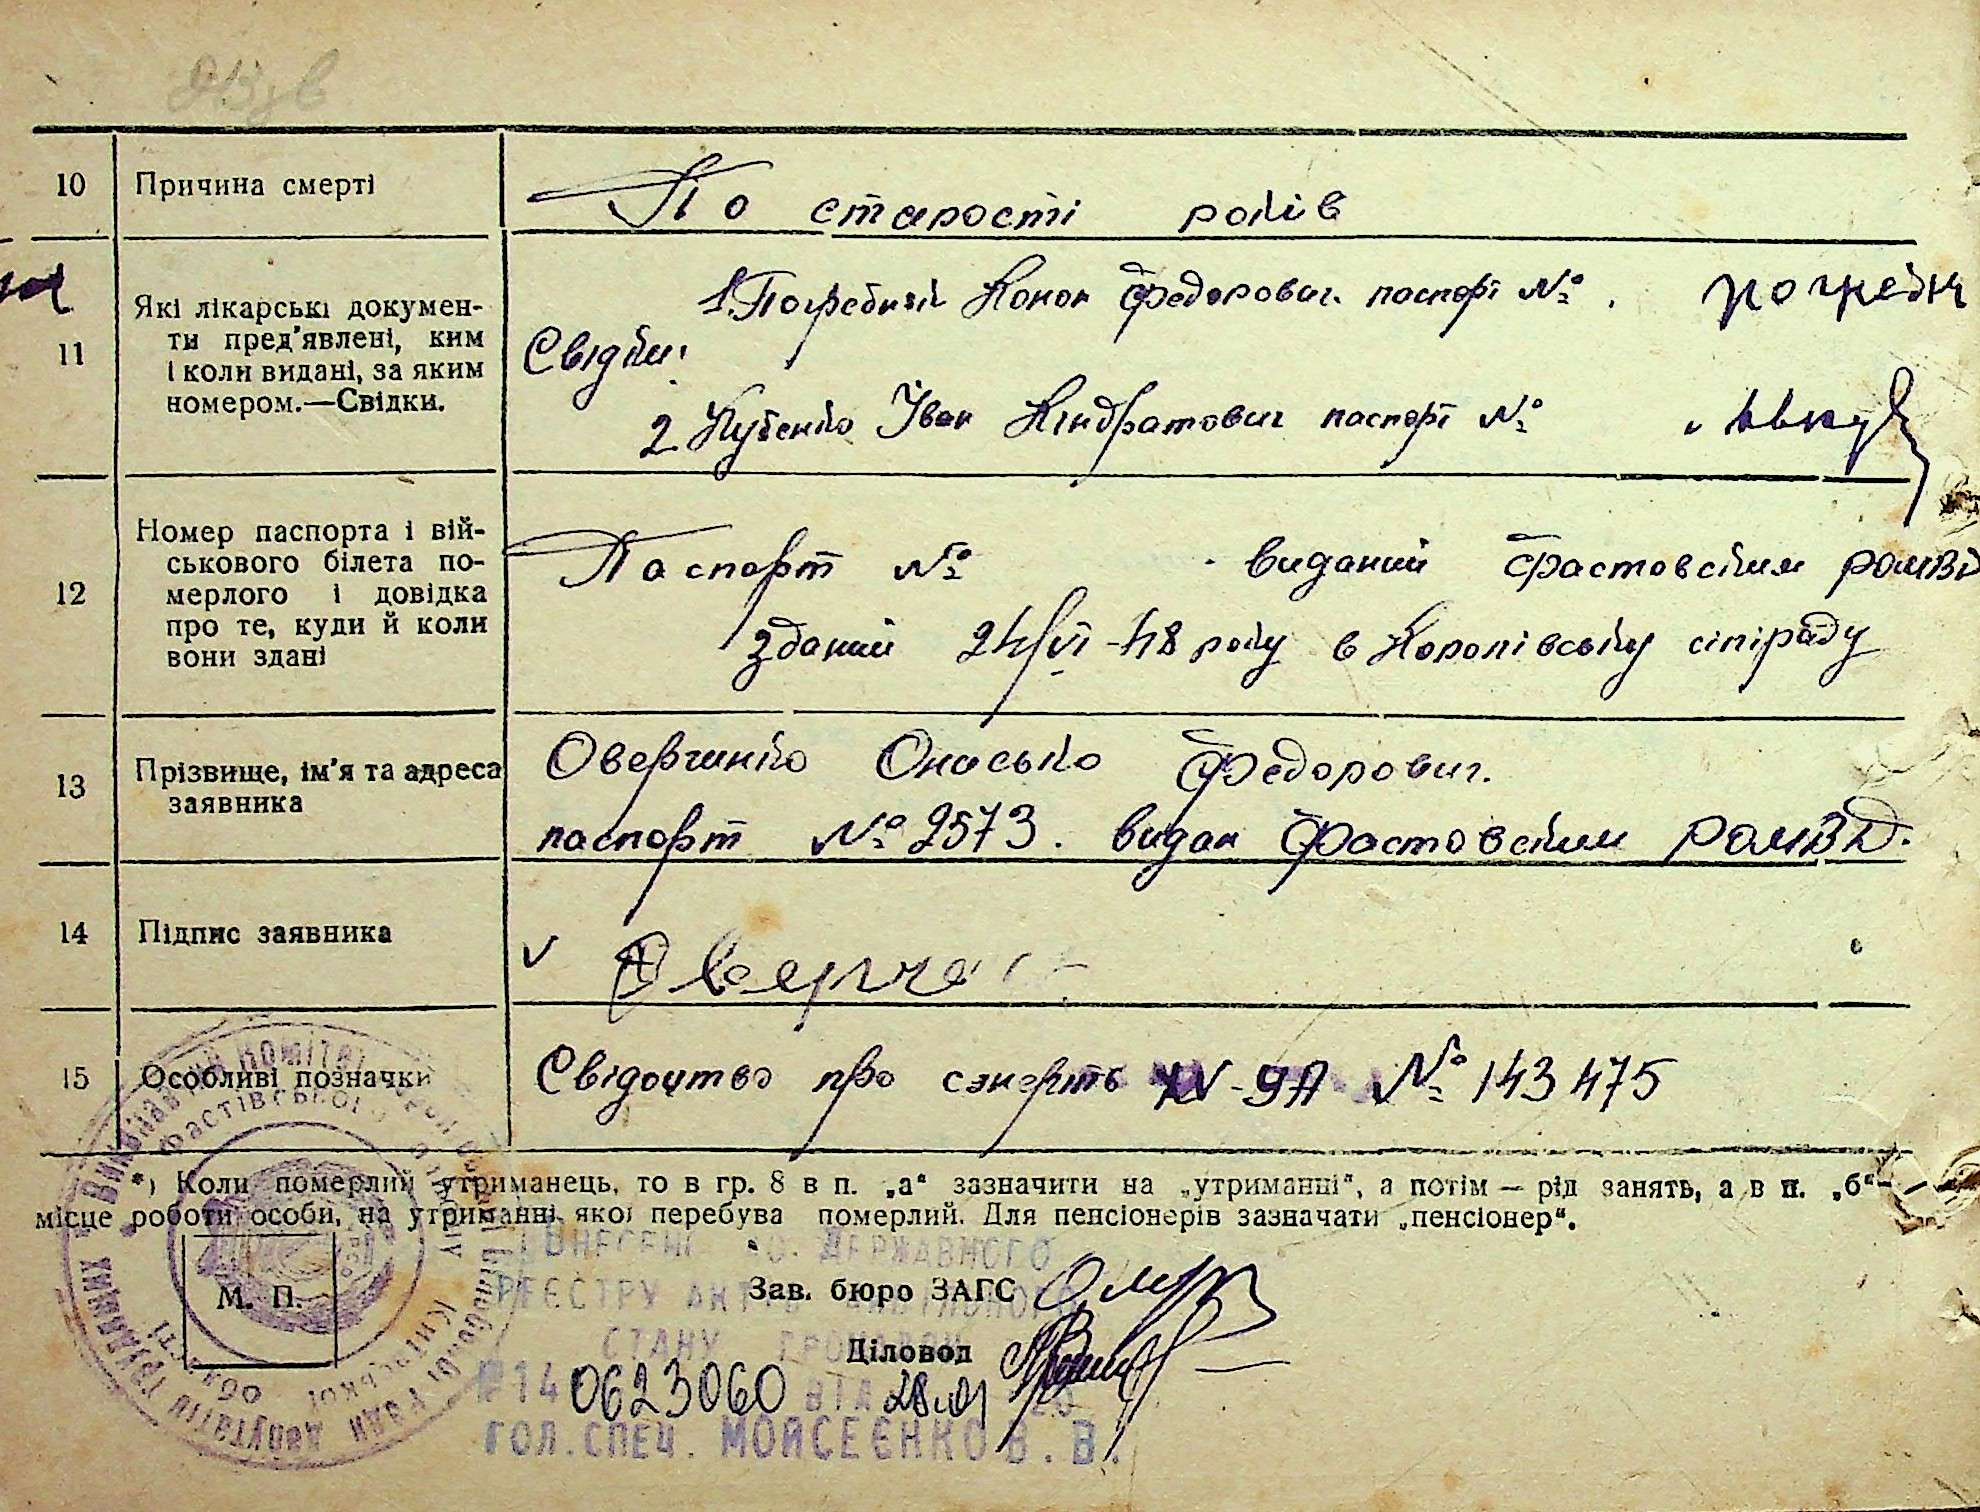 10 Причина смерті По старості років
11 Які лікарські документи пред'явлені, ким і коли видані, за яким номером.—Свідки.
Свідки:
1. Погребний Конон Федорович паспорт №
2 Куценко Іван Кіндратович паспорт №
12 Номер паспорта і військового білета померлого і довідка про те, куди й коли вони здані
Паспорт № виданий Фастовским РОМВД
зданий 24/VI-48 року в сільраду
13 Прізвище, ім'я та адреса заявника
Оверчинко Онасько Федорович.
паспорт № 2573. видан Фастовским РОМВД.
14 Підпис заявника
15 Особливі позначки Свідоцтво про смерть № 143475
*) Коли померлий утриманець, то в гр. 8 в п. „а“ зазначити на „утриманні“, а потім — рід занять, а в п. „б“—
місце роботи особи, на утриманні якої перебува померлий. Для пенсіонерів зазначати „пенсіонер“.
М. П.
ВНЕСЕНІ ДО ДЕРЖАВНОГО
Зав. бюро ЗАГС
РЕЄСТРУ АКТІВ ЦИВІЛЬНОГО
СТАНУ ГРОМАДЯН
Діловод
№14 0623060 ВІД 28.01
ГОЛ.СПЕЦ. МОЙСЕЄНКО В.В.